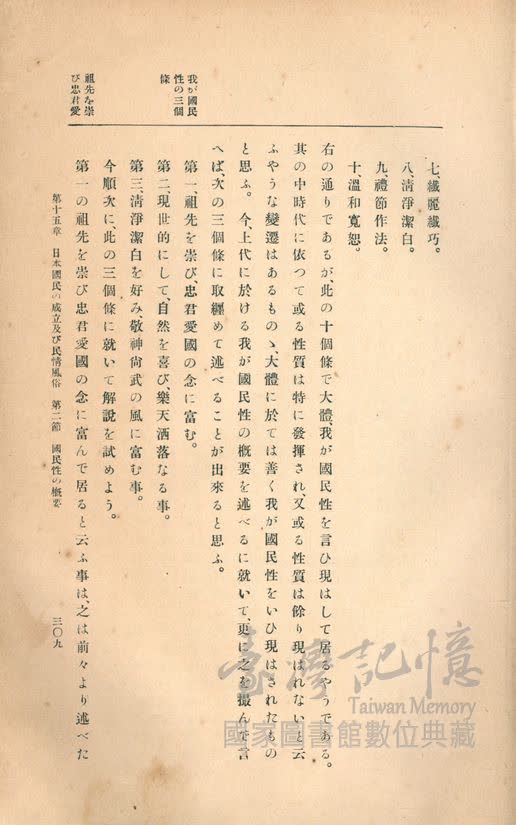 我が國民
性の三個
條
祖先を崇
び忠君愛
七、纖麗纖巧。
八、淸淨潔白。
九、禮節作法。
十、溫和寬恕。
右の通りであるが、此の十個條で大體、我が國民性を言ひ現はして居るやうである。
其の中時代に依つて或る性質は特に發揮され、又或る性質は餘り現はれないと云
ふやうな變遷はあるものゝ、大體に於ては善く我が國民性をいひ現はされたもの
と思ふ。今、上代に於ける我が國民性の概要を述べるに就いて、更に之を撮んで言
へば、次の三個條に取纒めて述べることが出來ると思ふ。
第一、祖先を崇び、忠君愛國の念に富む。
第二、現世的にして、自然を喜び、樂天洒落なる事。
第三、淸淨潔白を好み、敬神尙武の風に富む事。
今順次に、此の三個條に就いて解說を試めよう。
第一の祖先を崇び忠君愛國の念に富んで居ると云ふ事は、之は前々より述べた
第十五章 日本國民の成立及び民情風俗 第二節 國民性の概要
三〇九
臺灣記憶
Taiwan Memory
國家圖書館數位典藏